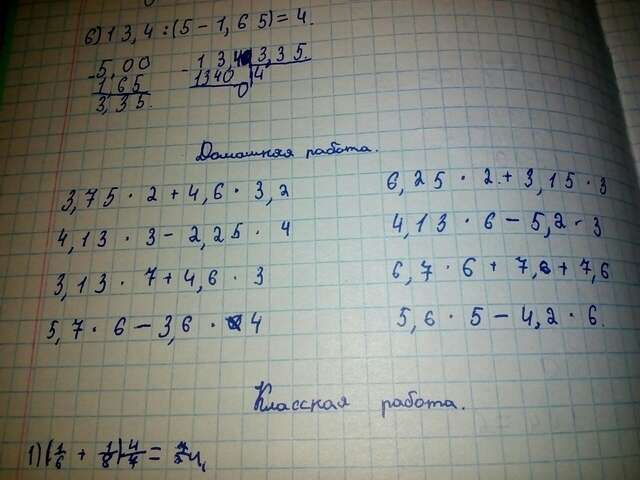 6) 13,4 : (5 - 1,65) = 4.
- 5,00 - 13,40 | 3,35.
1 65 1340 | 4
3,35. 0
Домашняя работа.
3,75 · 2 + 4,6 · 3,2
4,13 · 3 - 2,25 · 4
3,13 · 7 + 4,6 · 3
5,7 · 6 - 3,6 · 4
6,25 · 2 + 3,15 · 3
4,13 · 6 - 5,2 · 3
6,7 · 6 + 7,8 + 7,6
5,6 · 5 - 4,2 · 6.
Классная работа.
1) (1/6 + 1/8) 4/7 =